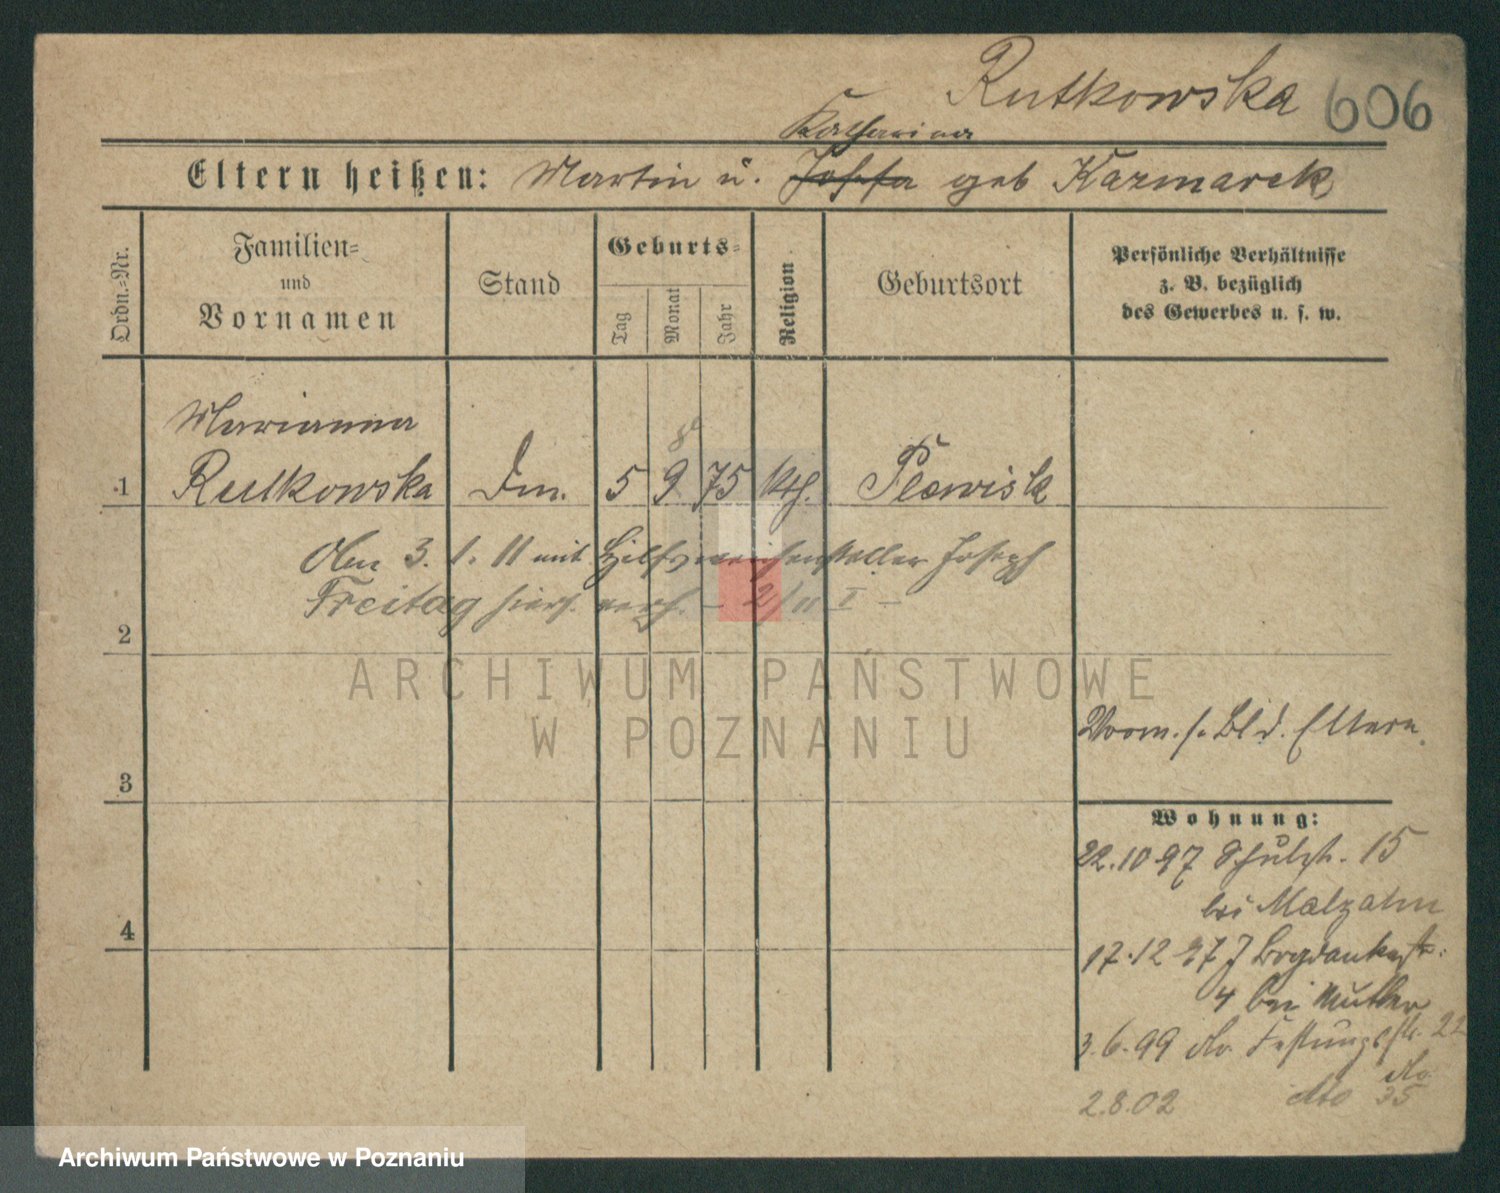 Rutkowska 606
Katharina
Eltern heißen: Martin u. Josefa geb Kazmarek
Ordn.-Nr.
Familien-
und
Vornamen
Stand
Geburts-
Tag
Monat
Jahr
Religion
Geburtsort
Persönliche Verhältnisse
z. B. bezüglich
des Gewerbes u. s. w.
Marianna
8
1 Rutkowska Dm. 5 9 75 kth. Plewisk
Am 3. 1. 11 mit Hilfsweichensteller Joseph
Freitag hiers. verh. – 2/11 I –
2
ARCHIWUM PAŃSTWOWE
W POZNANIU
Vorm. s. Bl d. Eltern
3
Wohnung:
22.10.97 Schulstr. 15
bei Malzahn
4
17.12 97 J Bogdankastr.
4 bei Mutter
3.6.99 do. Festungsstr. 22
do.
2.8.02 dto 35
Archiwum Państwowe w Poznaniu